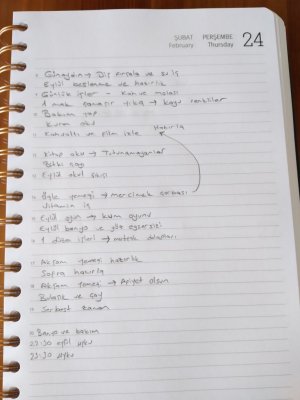 ŞUBAT
February
PERŞEMBE
Thursday
24
Günaydın → Diş fırçala ve su iç
Eylül beslenme ve hazırlık
Günlük işler - Kahve molası
1 mak çamaşır yıka → koyu renkliler
Bakım yap
Kuran oku
Kahvaltı ve film izle
Hazırla
Kitap oku → Tutunamayanlar
Bitki çayı
Eylül okul
Öğle yemeği → mercimek çorbası
Vitamin iç
Eylül oyun → kum oyunu
Eylül banyo ve göz egzersizi
1 düzen işleri → mutfak dolapları
Akşam yemeği hazırlık
Sofra hazırla
Akşam yemeği → Afiyet olsun
Bulaşık ve çay
Serbest zaman
Banyo ve bakım
22:30 eylül uyku
23:30 uyku